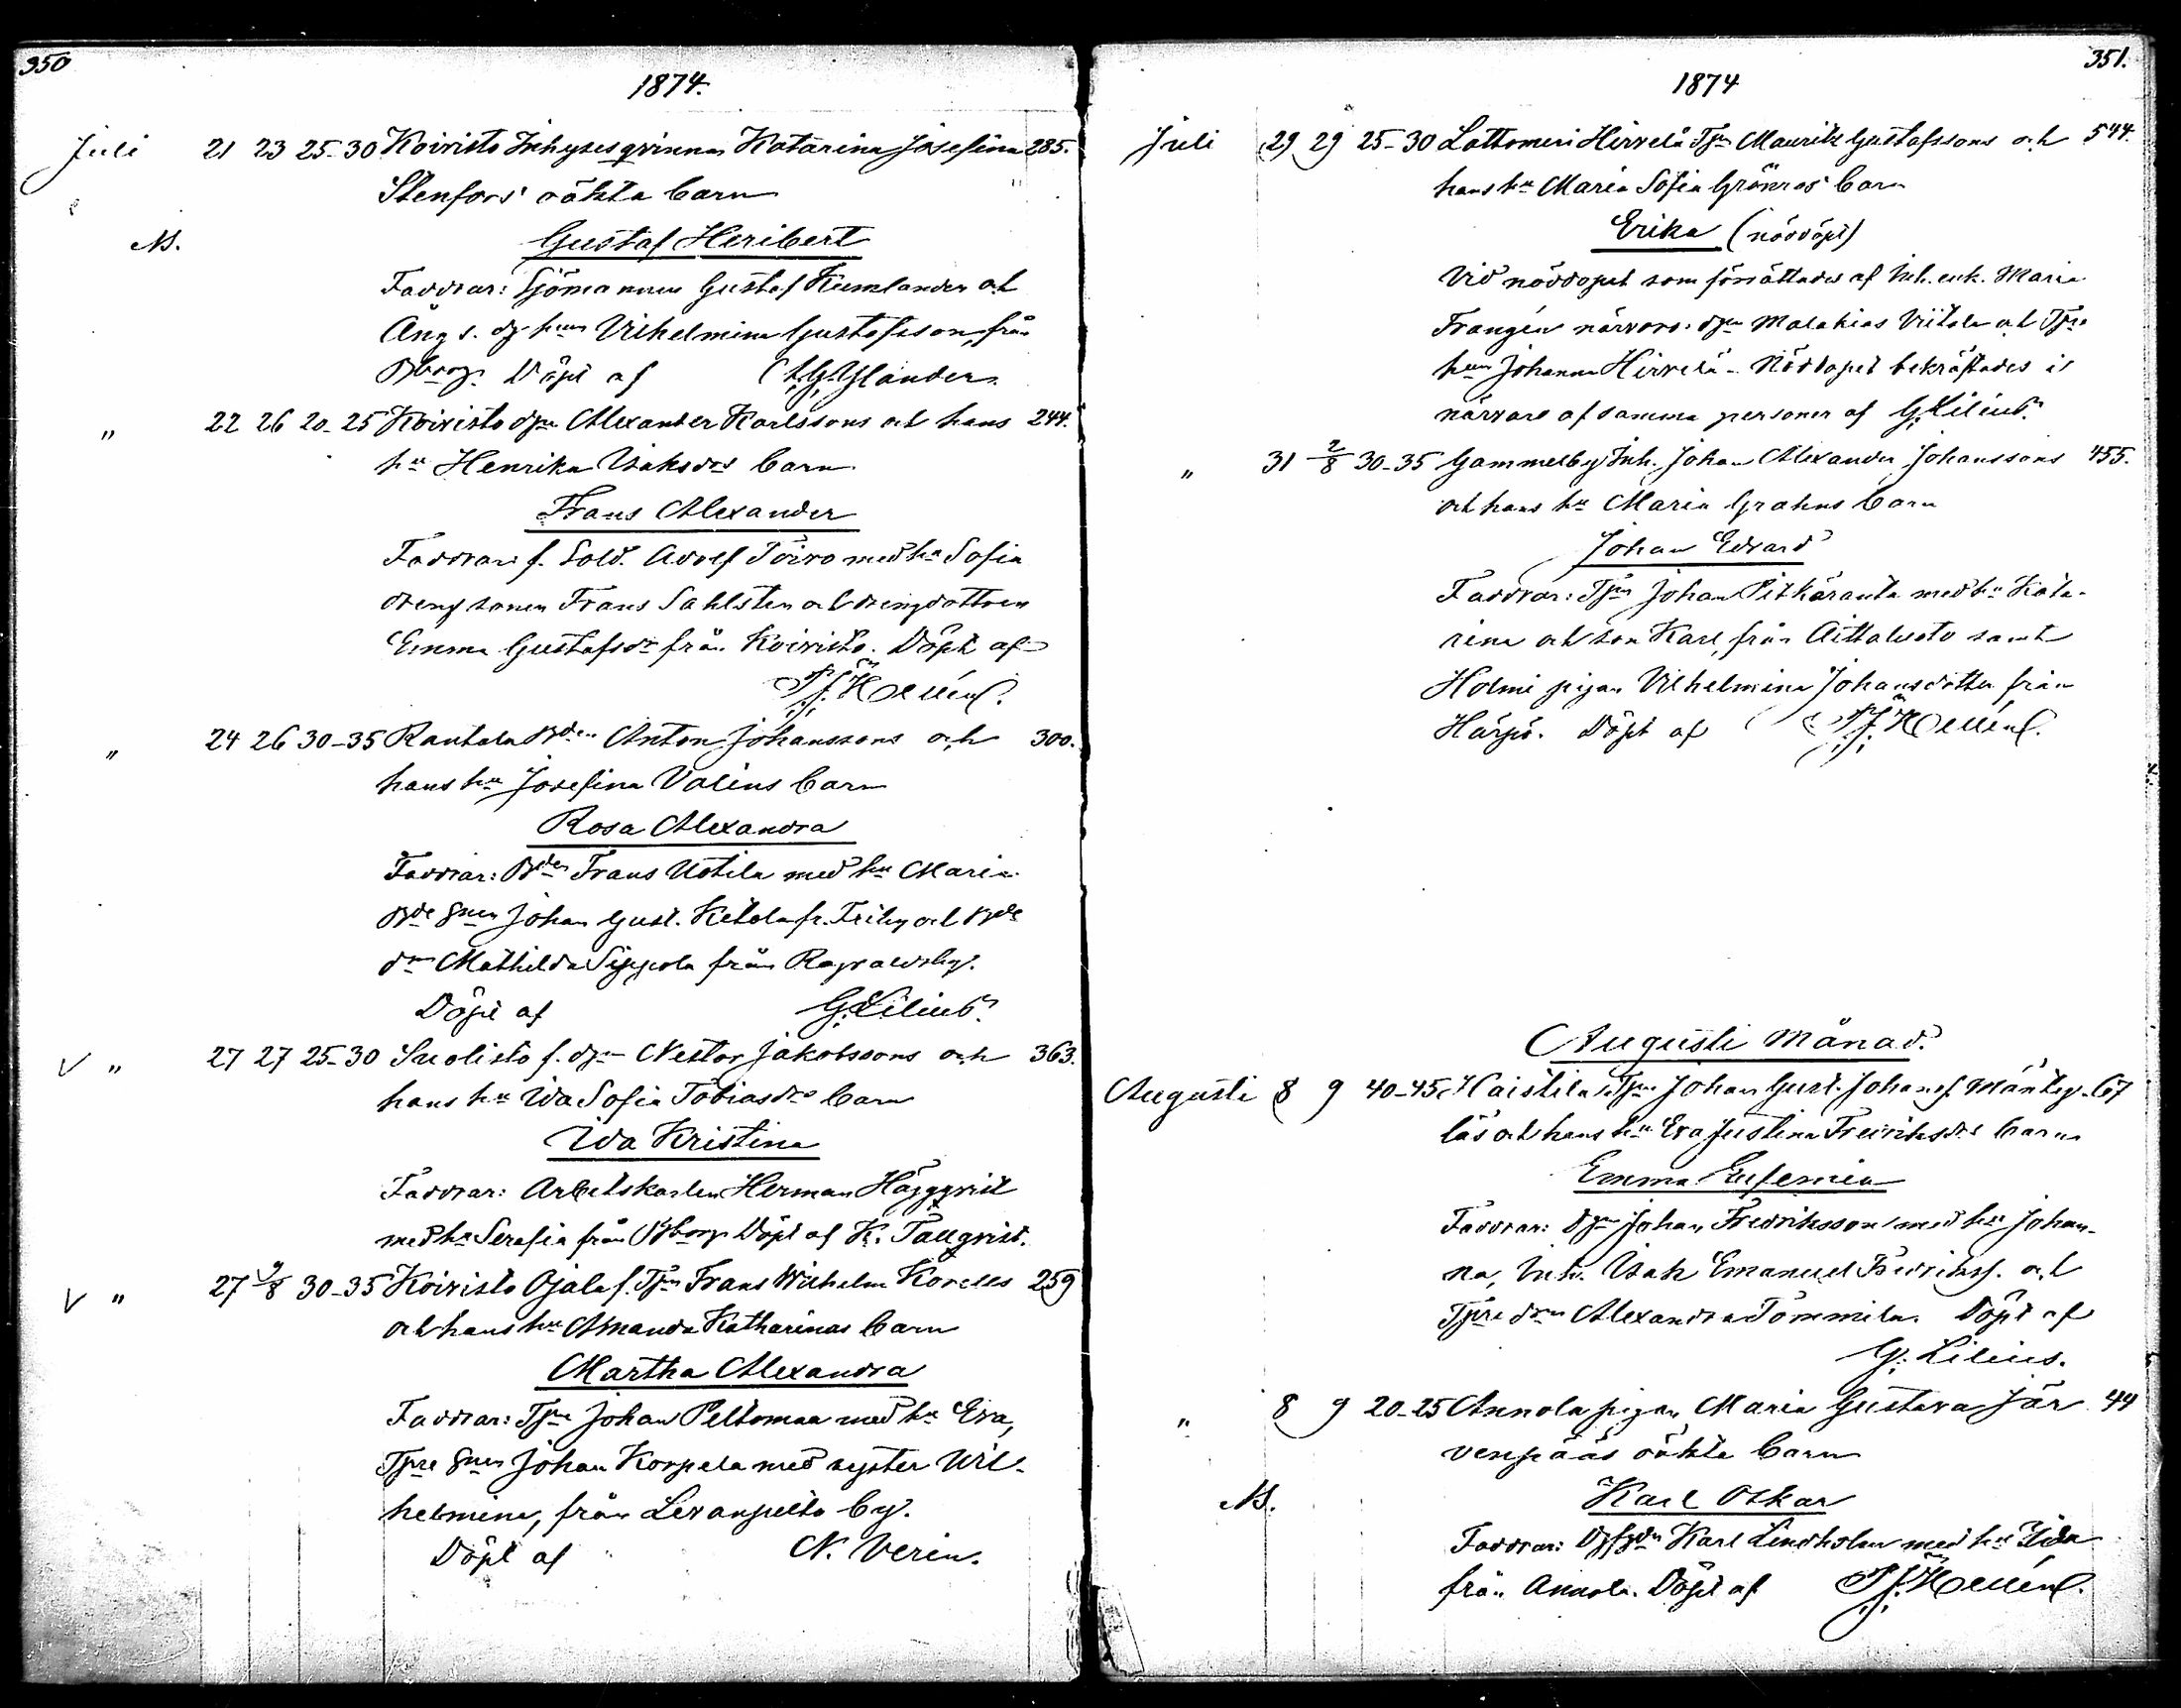 350
1874.
Juli 21 23 25-30 Koivisto Inhyses qvinnan Katarina Josefina 285.
Stenfors' oäkta barn
NB. Gustaf Heribert
Faddrar: Sjömannen Gustaf Kumlander och
Äng s. dr hun Vilhelmina Gustafsson, från
Bborg. Döpt af
" 22 26 20-25 Koivisto dgn Alexander Karlssons och hans 244.
hu Henrika Isaksdrs barn
Frans Alexander
Faddrar: f. Sold. Adolf Toivo med hu Sofia
drengsonen Frans Sahlsten och drengdottren
Emma Gustafsdr från Koivisto. Döpt af
F. J. Hellén.
" 24 26 30-35 Rantala Bden Anton Johanssons och 300.
hans hu Josefina Valins barn
Rosa Alexandra
Faddrar: Bden Frans Uotila med hu Maria
Bde snen Johan Gust. Ketola fr. Friby och Bde
drn Mathilda Sippola från Ragvaldsby.
Döpt af G. Lilius.
V " 27 27 25-30 Suolisto f. dgn Nestor Jakobssons och 363.
hans hu Ida Sofia Tobiasdrs barn
Ida Kristina
Faddrar: Arbetskarlen Herman Häggqvist
med hu Serafia från Bborg. Döpt af K. Tallqvist.
V " 27 9/8 30-35 Koivisto Ojala f. Tpn Frans Wilhelm Korells 259
och hans hu Amanda Katharinas barn
Martha Alexandra
Faddrar: Tprn Johan Peltomaa med hu Eva,
Tpre snen Johan Korpela med syster Wil-
helmina, från Levanpelto by.
Döpt af N. Verin.
351.
1874
Juli 29 29 25-30 Lattomeri Hirvelä Tpn Mauritz Gustafssons och 544.
hans hu Maria Sofia Grönros' barn
Erika (nöddöpt)
Vid nöddopet som förrättades af Inh. enk. Maria
Frangén närvoro: dgn Malakias Viitala och Tpre
hun Johanna Hirvelä. Nöddopet bekräftades i
närvaro af samma personer af G. Lilius.
" 31 2/8 30-35 Gammelby Inh. Johan Alexander Johanssons 455.
och hans hu Maria Grahns barn
Johan Edvard
Faddrar: Tpn Johan Pitkäranta med hu Kata-
rina och son Karl, från Aittaluoto samt
Holmi pigan Vilhelmina Johansdotter från
Härpö. Döpt af F. J. Hellén.
Augusti Månad.
Augusti 8 9 40-45 Haistila Tpn Johan Gust. Johansf. Mänty- 67
läs och hans hu Eva Justina Fredriksdrs barn
Emma Eufemia
Faddrar: Dgn Johan Fredriksson med hu Johan-
na, Inh. Isak Emanuel Fredriksf. och
Tpre drn Alexandra Tommila. Döpt af
G. Lilius.
" 8 9 20-25 Annola pigan Maria Gustava Jär 44
venpääs oäkta barn
NB. Karl Oskar
Faddrar: Karl Lindholm med hu Ida
från Annola. Döpt af F. J. Hellén.